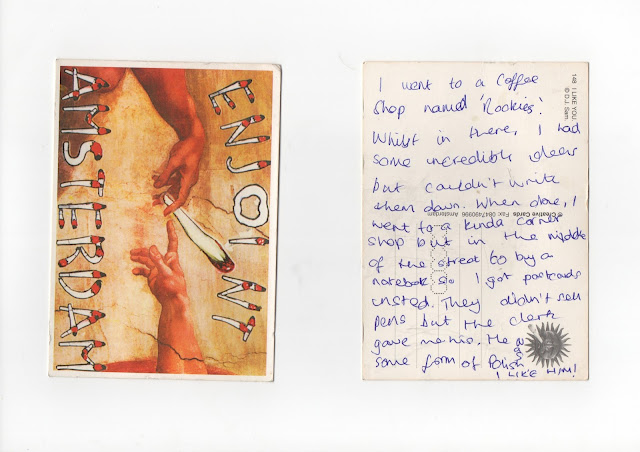 ENJOINT
AMSTERDAM
I went to a coffee
shop named 'Rookies'.
Whilst in there, I had
some incredible ideas
but couldn't write
them down. When done, I
went to a kinda corner
shop but in the middle
of the street to by a
notebook so I got postcards
insted. They didn't sell
pens but the clerk
gave me his. He was
some form of Polish
I LIKE HIM!
148 I LIKE YOU.
Creative Cards Fax: 0847490996 Amsterdam